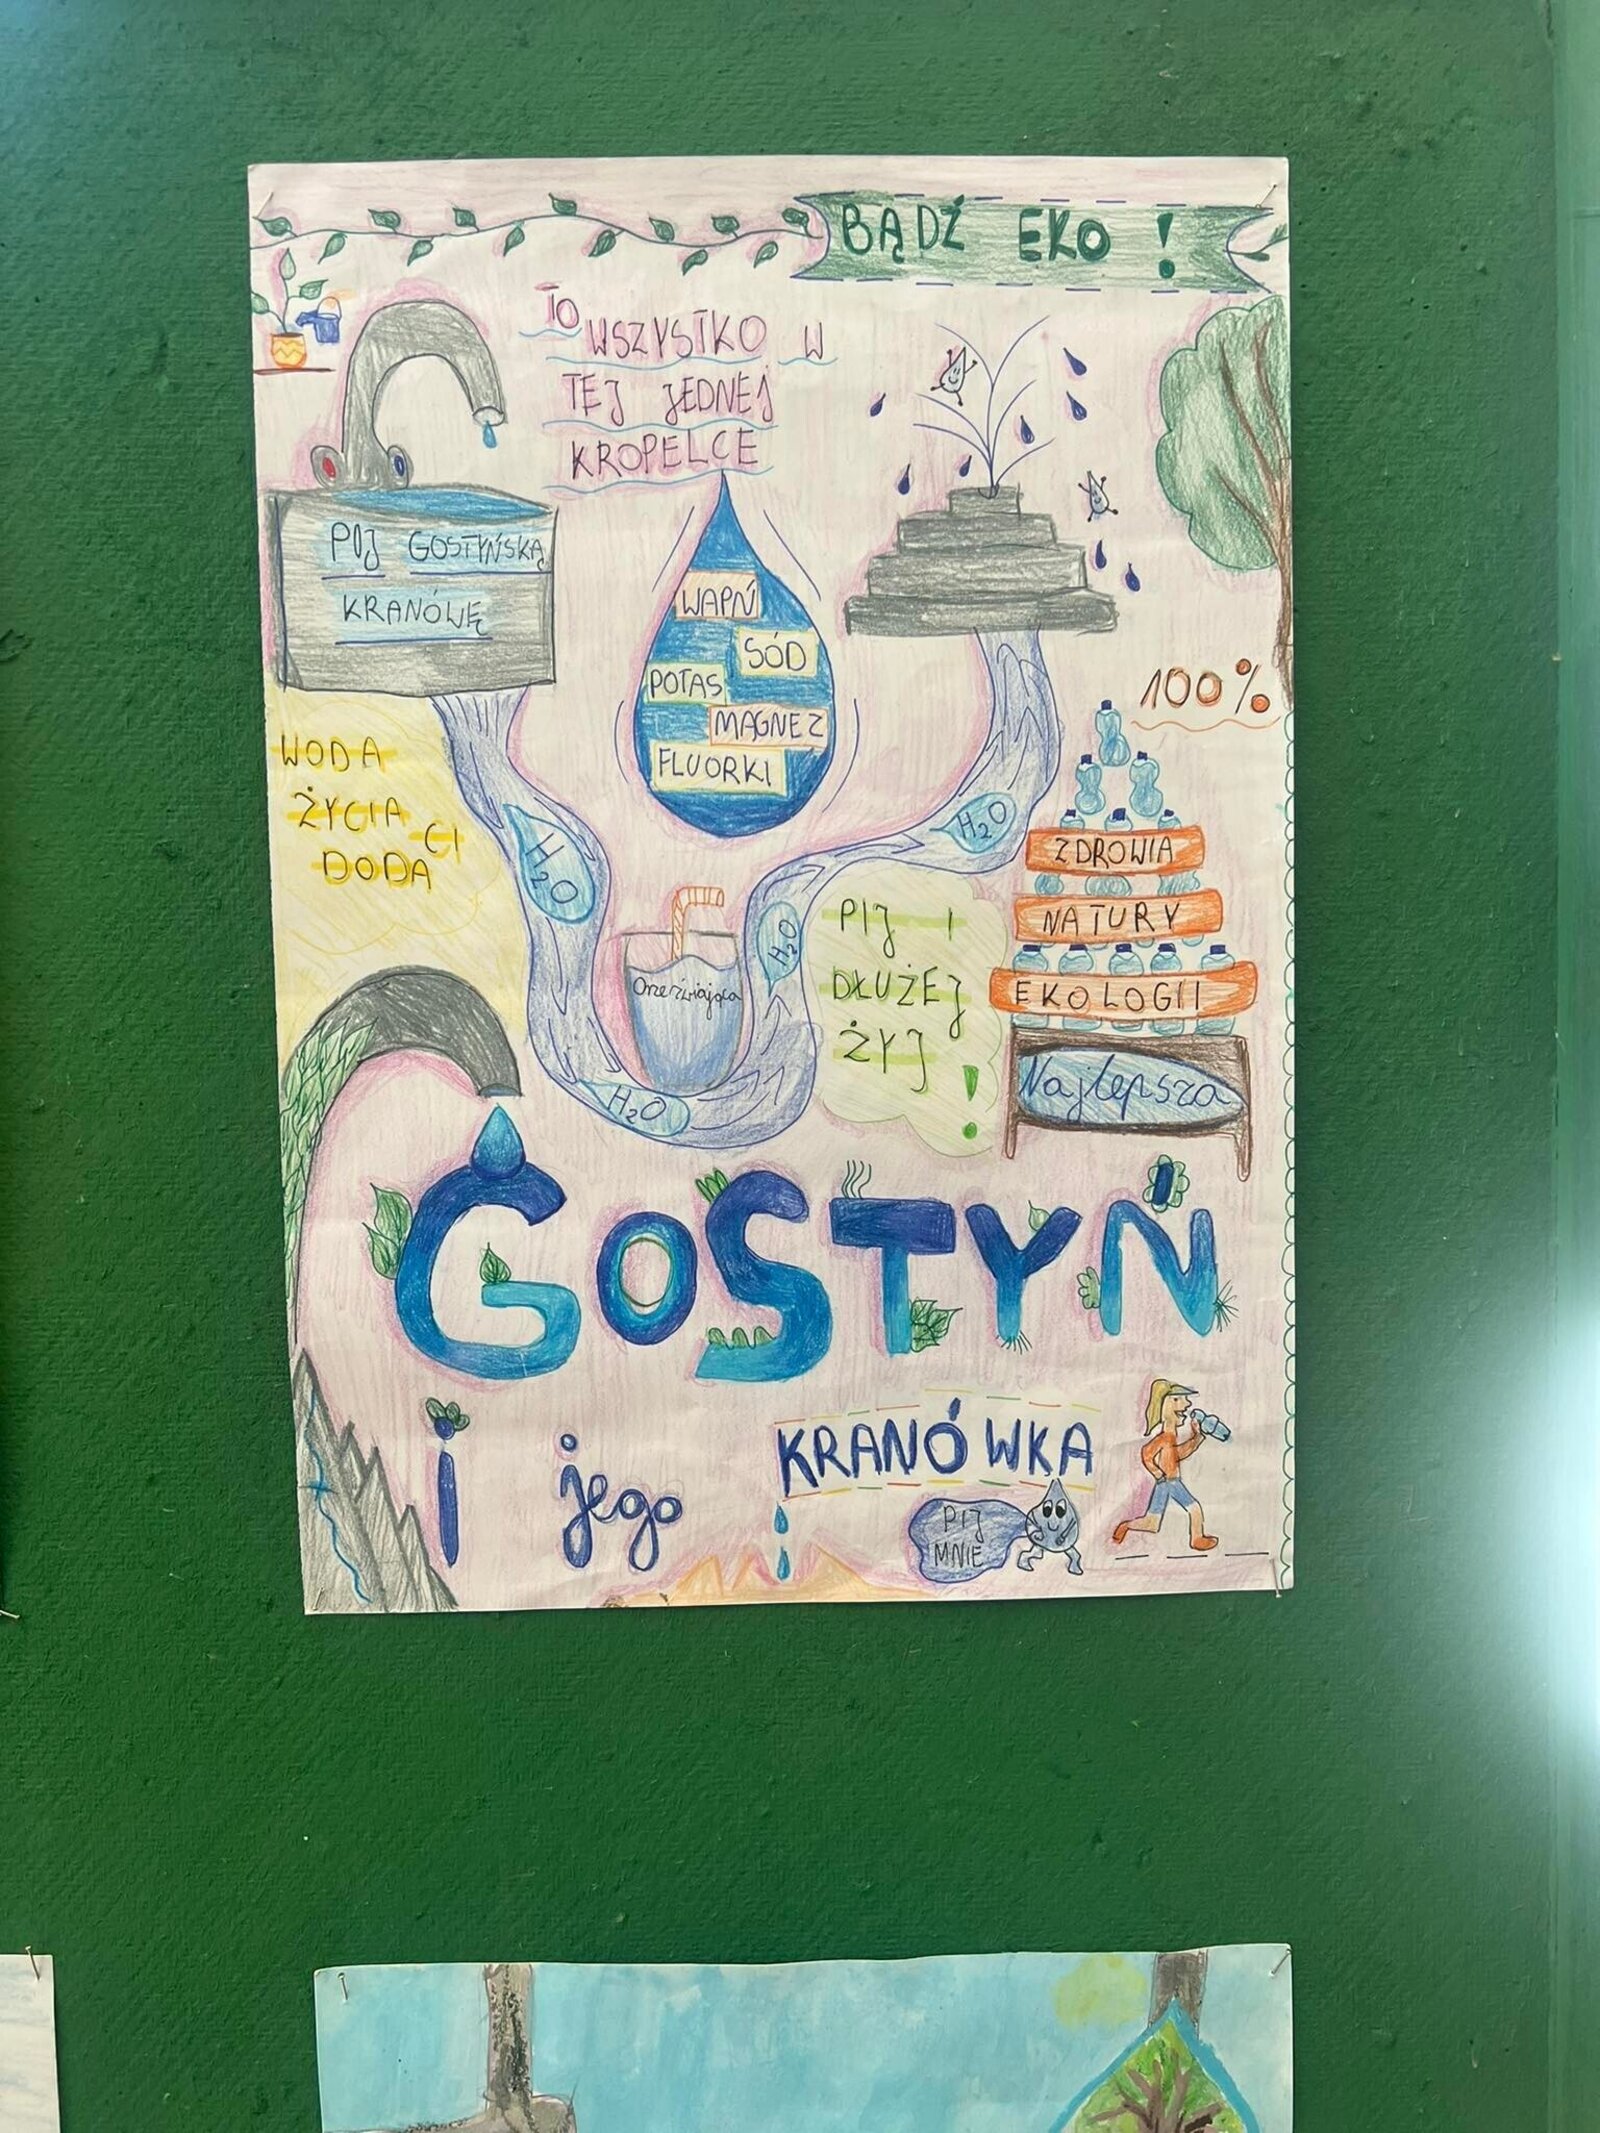 BĄDŹ EKO!
TO
WSZYSTKO W
TEJ JEDNEJ
KROPELCE
POJ GOSTYŃSKĄ
KRANÓWĘ
WAPŃ
SÓD
POTAS
MAGNEZ
FLUORKI
100%
WODA
ŻYCIA CI
DODA
H2O
H2O
H2O
H2O
Orzeźwiająca
PIJ I
DŁUŻEJ
ŻYJ!
ZDROWIA
NATURY
EKOLOGII
Najlepsza
GOSTYŃ
i jego KRANÓWKA
PIJ
MNIE